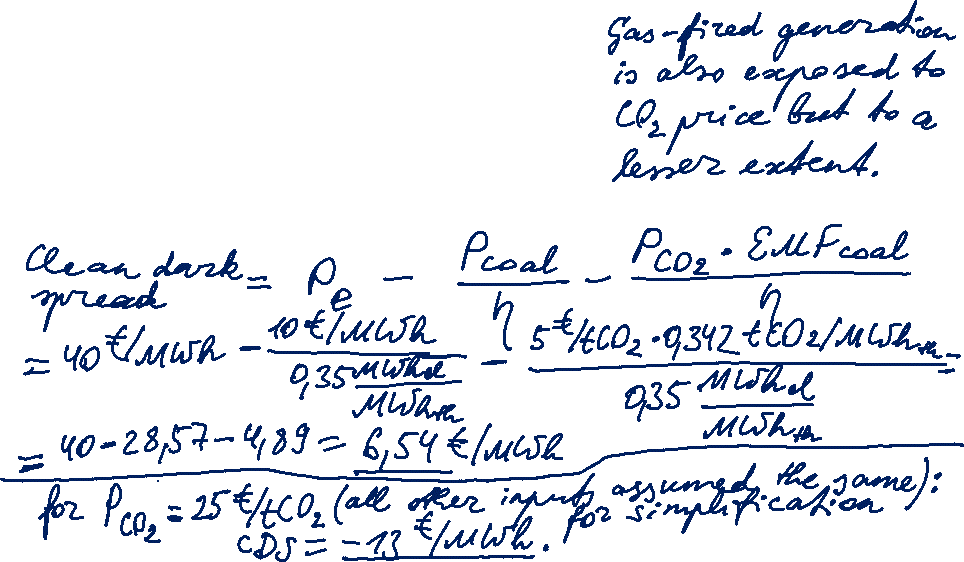 Gas-fired generation
is also exposed to
CO₂ price but to a
lesser extent.
Clean dark spread = Pe − Pcoal/η − (P_CO₂ · EMFcoal)/η
= 40 €/MWh − (10 €/MWh)/(0,35 MWhel/MWhth) − (5 €/tCO₂ · 0,342 tCO₂/MWhth)/(0,35 MWhel/MWhth) =
= 40 − 28,57 − 4,89 = 6,54 €/MWh
for P_CO₂ = 25 €/tCO₂ (all other inputs assumed the same):
for simplification
CDS = −13 €/MWh.